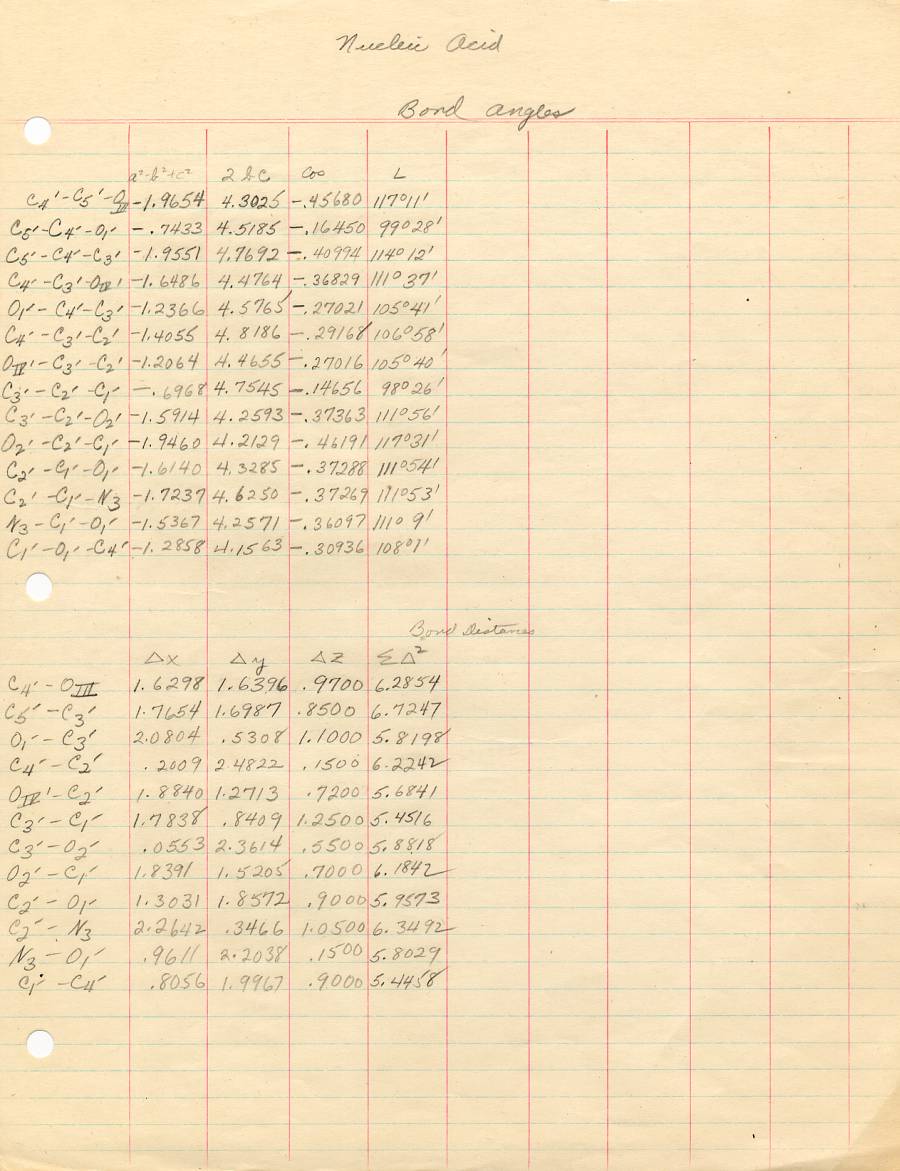 Nucleic Acid
Bond angles
a²-b²+c² 2bc cos L
C4'-C5'-OIII -1.9654 4.3025 -.45680 117°11'
C5'-C4'-O1' -.7433 4.5185 -.16450 99°28'
C5'-C4'-C3' -1.9551 4.7692 -.40994 114°12'
C4'-C3'-OIV' -1.6486 4.4764 -.36829 111°37'
O1'-C4'-C3' -1.2366 4.5765 -.27021 105°41'
C4'-C3'-C2' -1.4055 4.8186 -.29168 106°58'
OIV'-C3'-C2' -1.2064 4.4655 -.27016 105°40'
C3'-C2'-C1' -.6968 4.7545 -.14656 98°26'
C3'-C2'-O2' -1.5914 4.2593 -.37363 111°56'
O2'-C2'-C1' -1.9460 4.2129 -.46191 117°31'
C2'-C1'-O1' -1.6140 4.3285 -.37288 111°54'
C2'-C1'-N3 -1.7237 4.6250 -.37269 111°53'
N3-C1'-O1' -1.5367 4.2571 -.36097 111°9'
C1'-O1'-C4' -1.2858 4.1563 -.30936 108°1'
Bond Distances
Δx Δy ΔZ ΣΔ²
C4'-OIII 1.6298 1.6396 .9700 6.2854
C5'-C3' 1.7654 1.6987 .8500 6.7247
O1'-C3' 2.0804 .5308 1.1000 5.8198
C4'-C2' .2009 2.4822 .1500 6.2242
OIV'-C2' 1.8840 1.2713 .7200 5.6841
C3'-C1' 1.7838 .8409 1.2500 5.4516
C3'-O2' .0553 2.3614 .5500 5.8818
O2'-C1' 1.8391 1.5205 .7000 6.1842
C2'-O1' 1.3031 1.8572 .9000 5.9573
C2'-N3 2.2642 .3466 1.0500 6.3492
N3-O1' .9611 2.2038 .1500 5.8029
C1'-C4' .8056 1.9967 .9000 5.4458